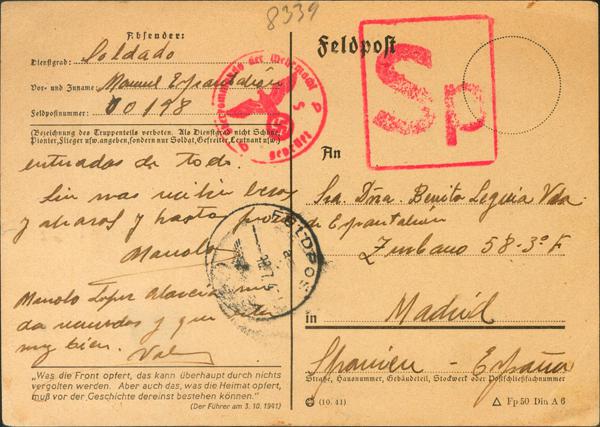 8339
Absender:
Dienstgrad: Soldado
Vor- und Zuname: Manuel Espantaleón
Feldpostnummer: 00198
(Bezeichnung des Truppenteils verboten. Als Dienstgrad nicht Schütze,
Pionier, Flieger usw. angeben, sondern nur Soldat, Gefreiter, Leutnant usw.)
enterados de todo.
Sin mas reciben besos
y abrazos y hasta
Manolo
Manolo Lopez
da recuerdos y que
muy bien.
"Was die Front opfert, das kann überhaupt durch nichts
vergolten werden. Aber auch das, was die Heimat opfert,
muß vor der Geschichte dereinst bestehen können."
(Der Führer am 3. 10. 1941)
der Wehrmacht
Geprüft
FELDPOST
Feldpost
Sp
An
Sra. Dña. Benita Vda.
de Espantaleón
Zurbano 58-3º F
in Madrid
Spanien - España
Straße, Hausnummer, Gebäudeteil, Stockwerk oder Postschließfachnummer
(10. 41)
△ Fp 50 Din A 6